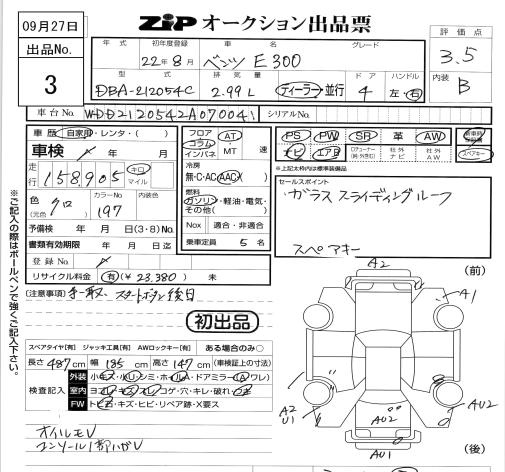 09月27日
ZiPオークション出品票
出品No.
3
年式 初年度登録 車名 グレード
22年8月 ベンツ E300
型式 排気量 ドア ハンドル
DBA-212054C 2.99L ディーラー・並行 4 左・右
評価点
3.5
内装
B
車台No. WDD2120542A070041 シリアルNo.
車歴 自家用・レンタ・( )
車検 年 月
走行 158,905 キロ マイル
色(元色) クロ カラーNo 197 内装色
予備検 年 月 日(3・8)No.
書類有効期限 年 月 日迄
登録No.
リサイクル料金 有(¥23.380) 未
フロア コラム インパネ AT ・MT 速
冷房
無・C・AC・AAC
燃料
ガソリン・軽油・電気・その他( )
Nox 適合・非適合
乗車定員 5名
PS PW SR 革 AW
ナビ エアB
スペアキー
※上記太枠内は標準装備品
セールスポイント
ガラススライディングルーフ
スペアキー
(注意事項) スタートボタン後日
初出品
スペアタイヤ[有] ジャッキ工具[有] AWロックキー[有] ある場合のみ○
長さ487cm 幅185cm 高さ147cm (車検証上の寸法)
検査記入
外装 小キズ・小・シミ・ホイールA・ドアミラー(A ワレ)
室内 ヨゴレ・キズ・スレ・コゲ・穴・キレ・破れ
FW トビ・キズ・ヒビ・リペア跡・X要ス
オイルモレ
コンソール1部ハガレ
(前)
A2
A1
A2
U1
AU2
AU2
AU1
(後)
※ご記入の際はボールペンで強くご記入下さい。